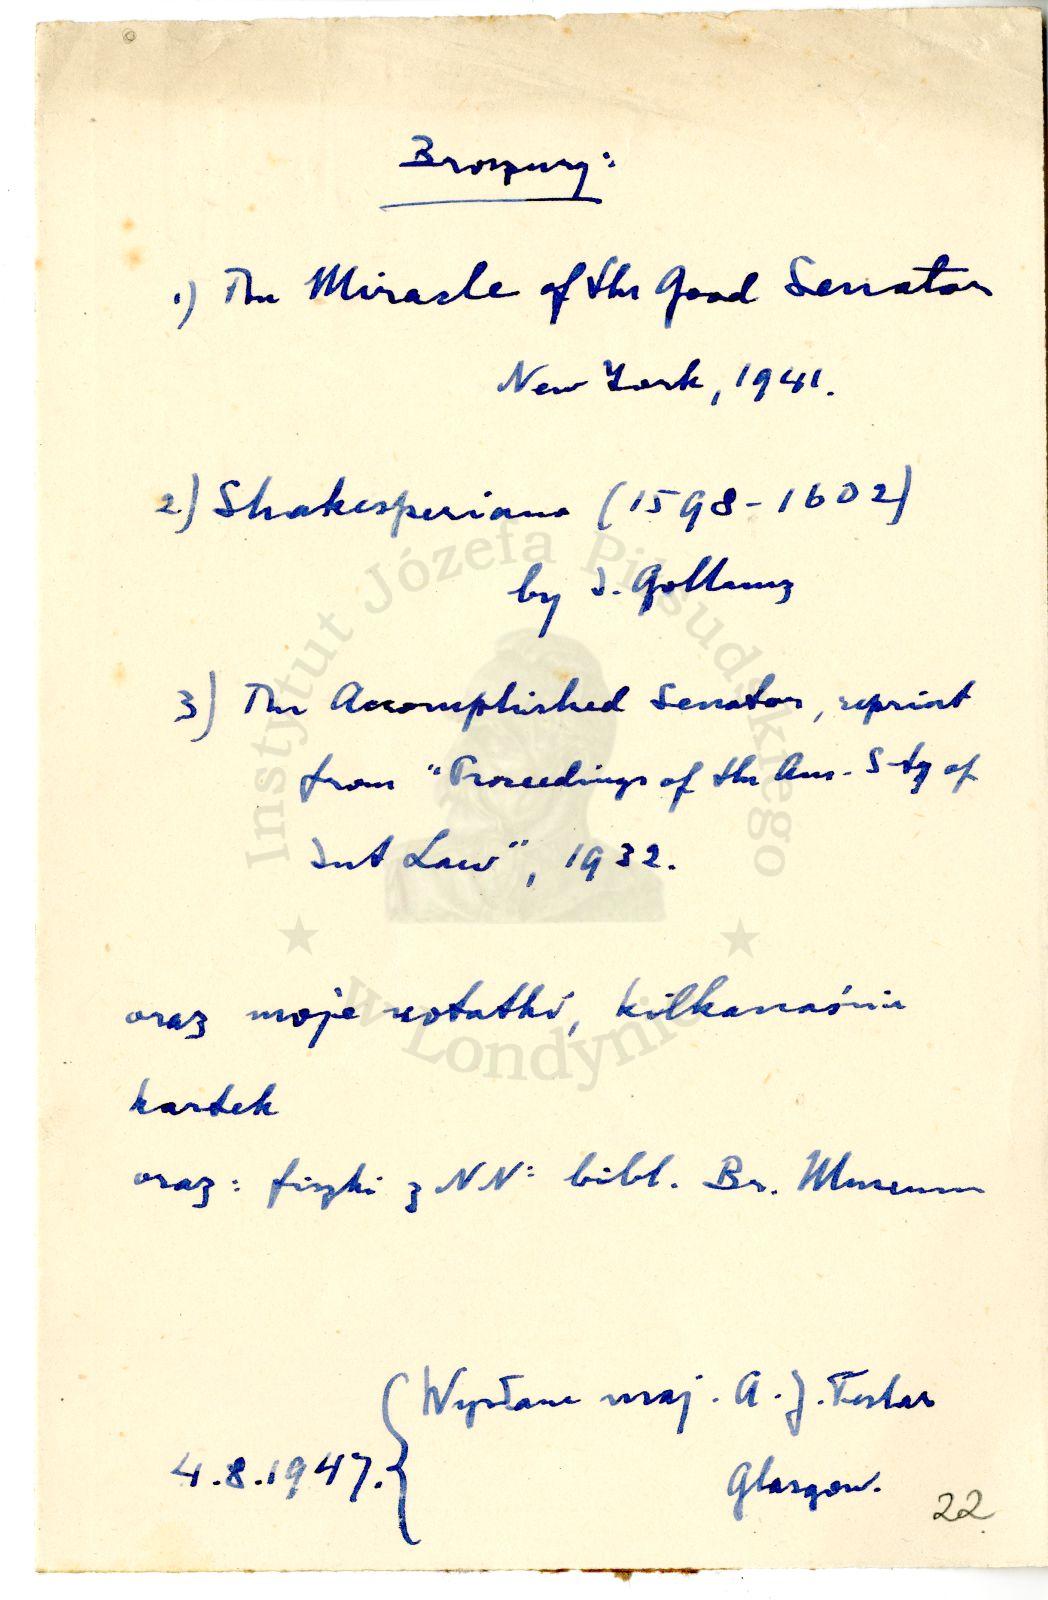 Broszury:
1) The Miracle of the Good Senator
New York, 1941.
2) Shakesperiana (1598-1602)
by I. Gollancz
3) The Accomplished Senator, reprint
from "Proceedings of the Am. S-ty of
Int Law", 1932.
oraz moje notatki, kilkanaście
kartek
oraz: fiszki z NN: bibl. Br. Museum
Wysłane maj. A. J.
4.8.1947.
Glasgow.
22
Instytut Józefa Piłsudskiego
w Londynie